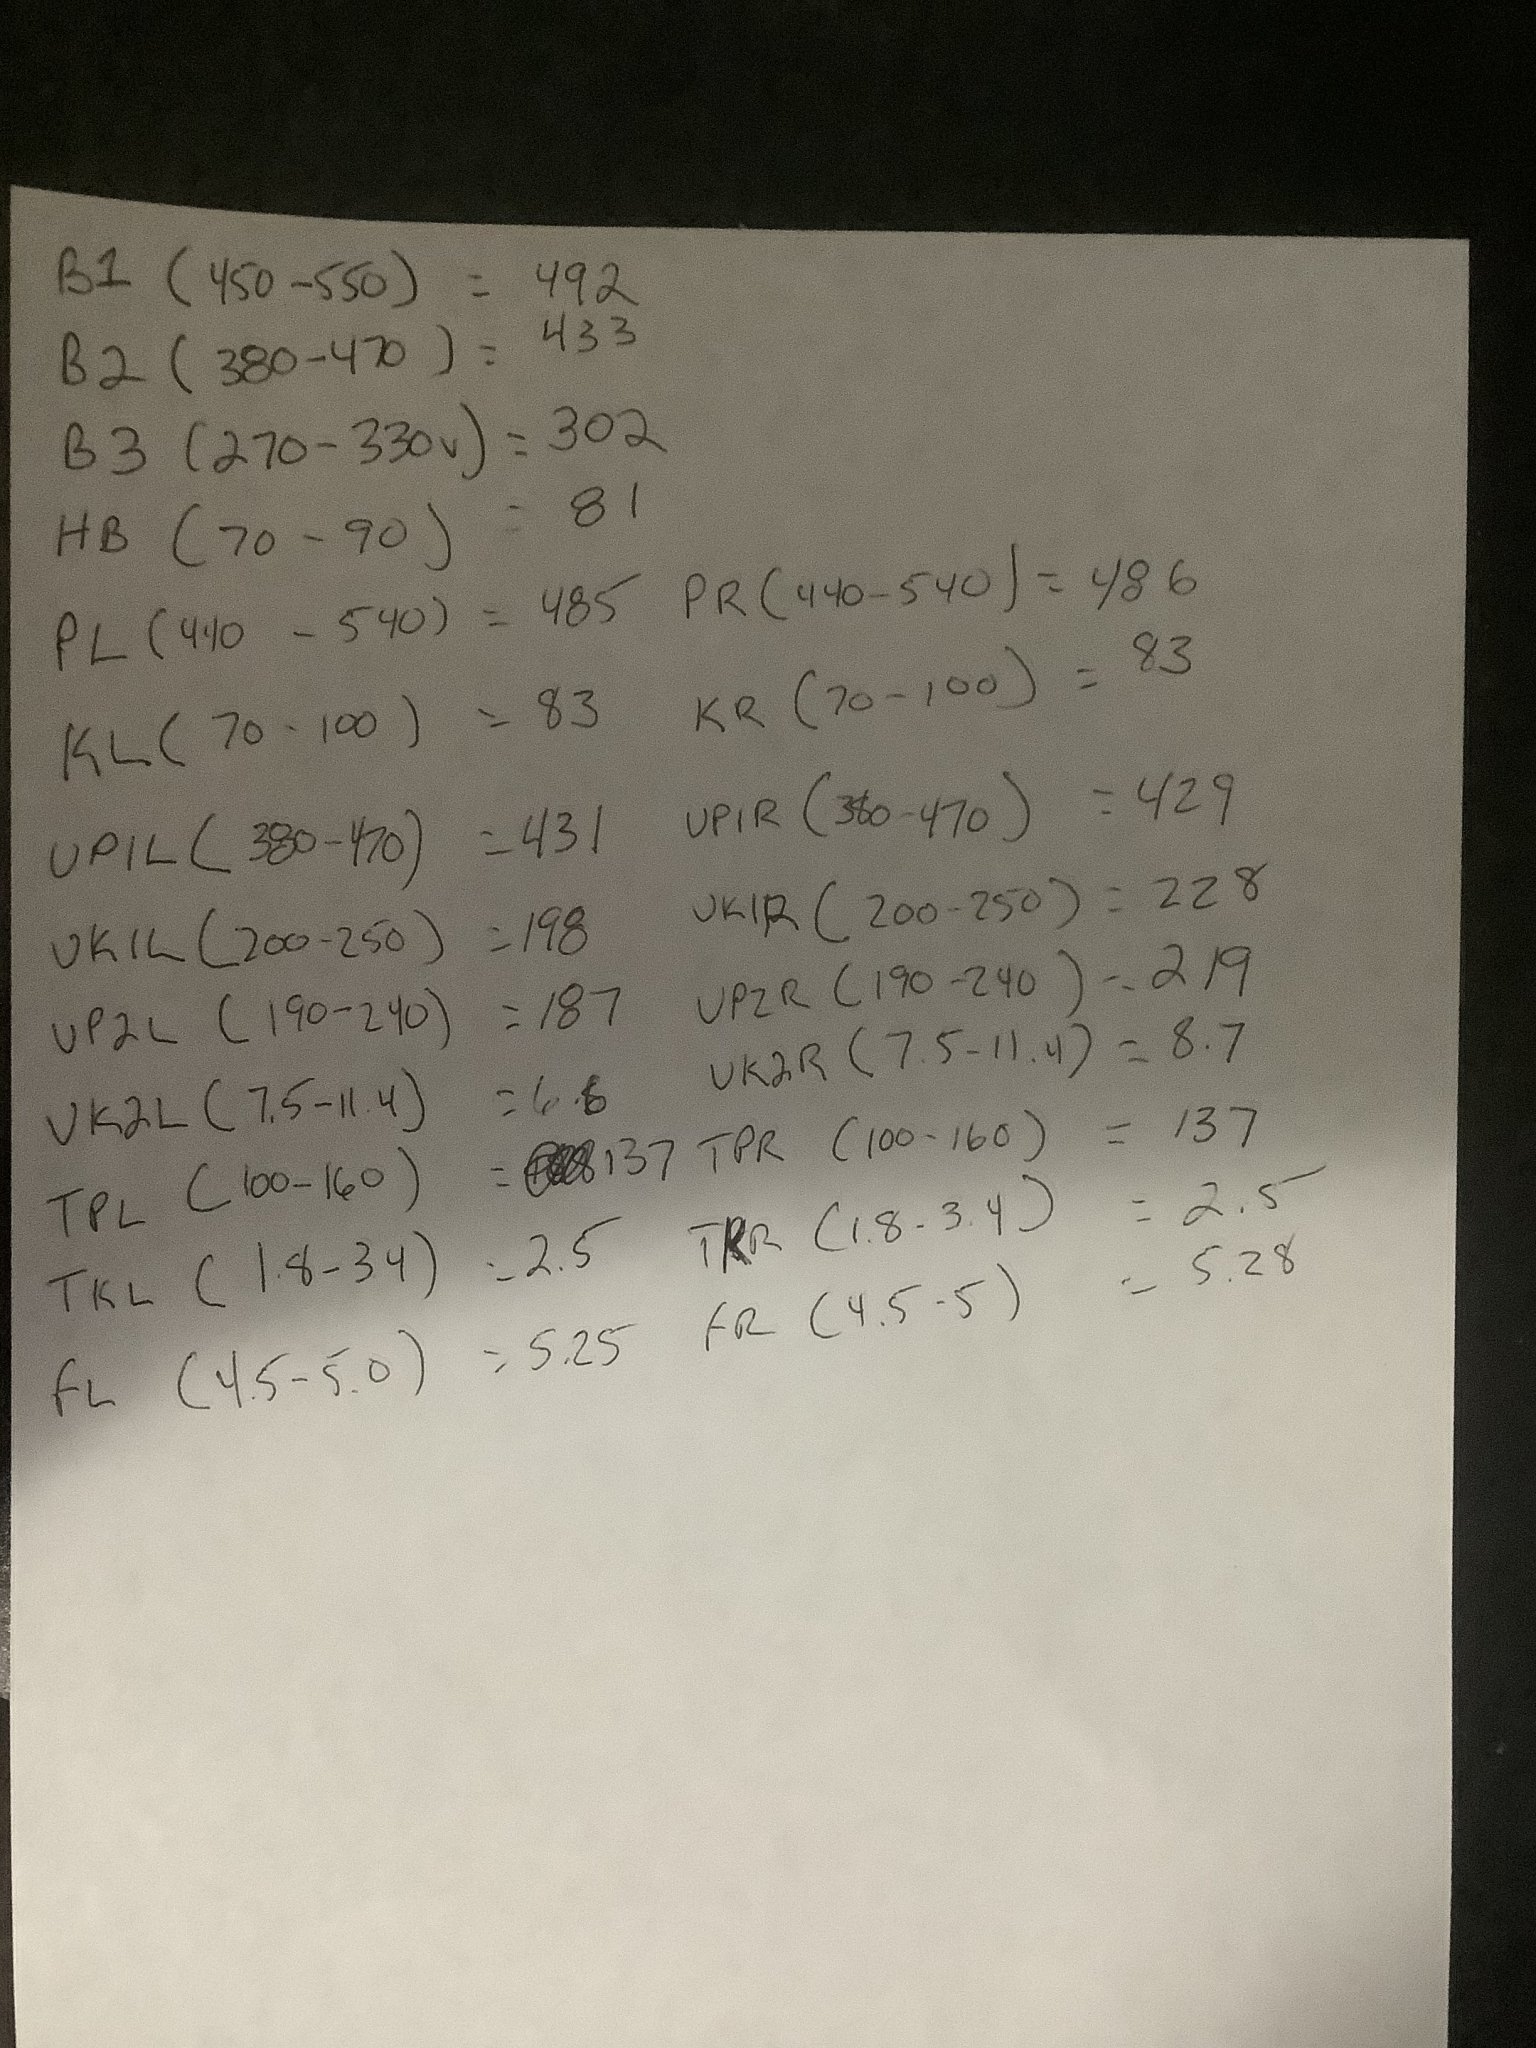 B1 (450-550) = 492
B2 (380-470) = 433
B3 (270-330v) = 302
HB (70-90) = 81
PL (440-540) = 485 PR (440-540) = 486
KL (70-100) = 83 KR (70-100) = 83
UP1L (380-470) = 431 UP1R (380-470) = 429
UK1L (200-250) = 198 UK1R (200-250) = 228
UP2L (190-240) = 187 UP2R (190-240) = 219
UK2L (7.5-11.4) = 6.6 UK2R (7.5-11.4) = 8.7
TPL (100-160) = 137 TPR (100-160) = 137
TKL (1.8-34) = 2.5 TKR (1.8-3.4) = 2.5
FL (4.5-5.0) = 5.25 FR (4.5-5) = 5.28